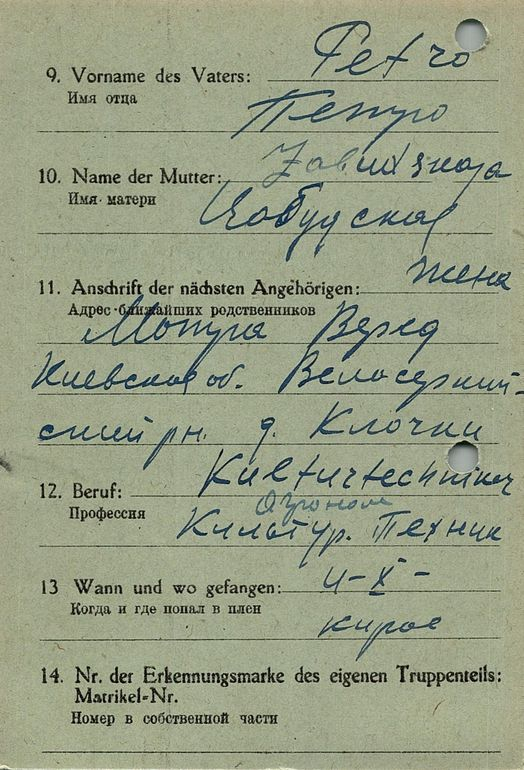 9. Vorname des Vaters: Petro
Имя отца Петро
10. Name der Mutter:
Имя матери
11. Anschrift der nächsten Angehörigen: жена
Адрес ближайших родственников
Мотуга Веред
Киевская об. Велосерний-
ский рн. д. Клочки
12. Beruf: Kulturtechniker
Агроном
Профессия Культур. Техник
13 Wann und wo gefangen: 4-X-
Когда и где попал в плен
14. Nr. der Erkennungsmarke des eigenen Truppenteils:
Matrikel-Nr.
Номер в собственной части